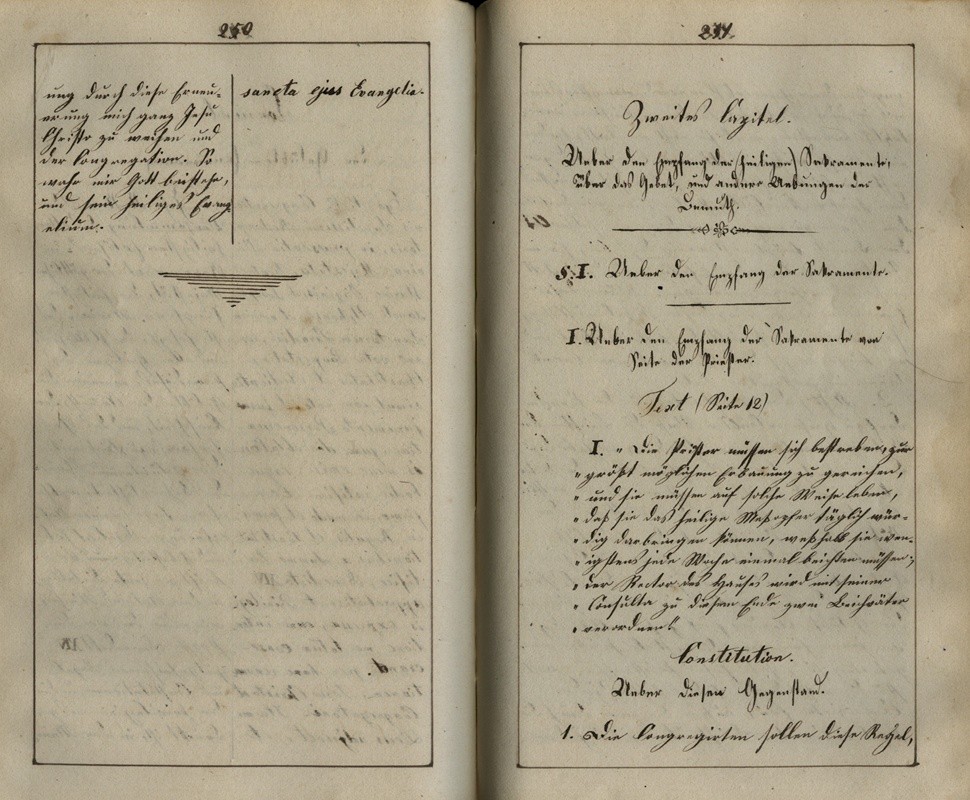 250
ung durch diese Erneu-
erung mich ganz Jesu
Christo zu weihen und
der Congregation. So
wahr mir Gott beistehe,
und sein heiliges Evang-
elium.
sancta ejus Evangelia.
251.
Zweites Capitel.
Ueber den Empfang der (heiligen) Sakramente,
über das Gebet, und andere Uebungen der
Demuth.
§.I. Ueber den Empfang der Sakramente.
I. Ueber den Empfang der Sakramente von
Seite der Priester.
Text (Seite 12)
I. „ Die Priester müssen sich bestreben, zur
„ größt möglichen Erbauung zu gereichen,
„ und sie müssen auf solche Weise leben,
„ daß sie das heilige Meßopfer täglich wür-
„ dig darbringen können, weßhalb sie wen-
„ igstens jede Woche einmal beichten müssen;
„ der Rector des Hauses wird mit seiner
„ Consulta zu diesem Ende zwei Beichtväter
„ verordnen."
Constitution.
Ueber diesen Gegenstand.
1. Die Congregirten sollen diese Regel,